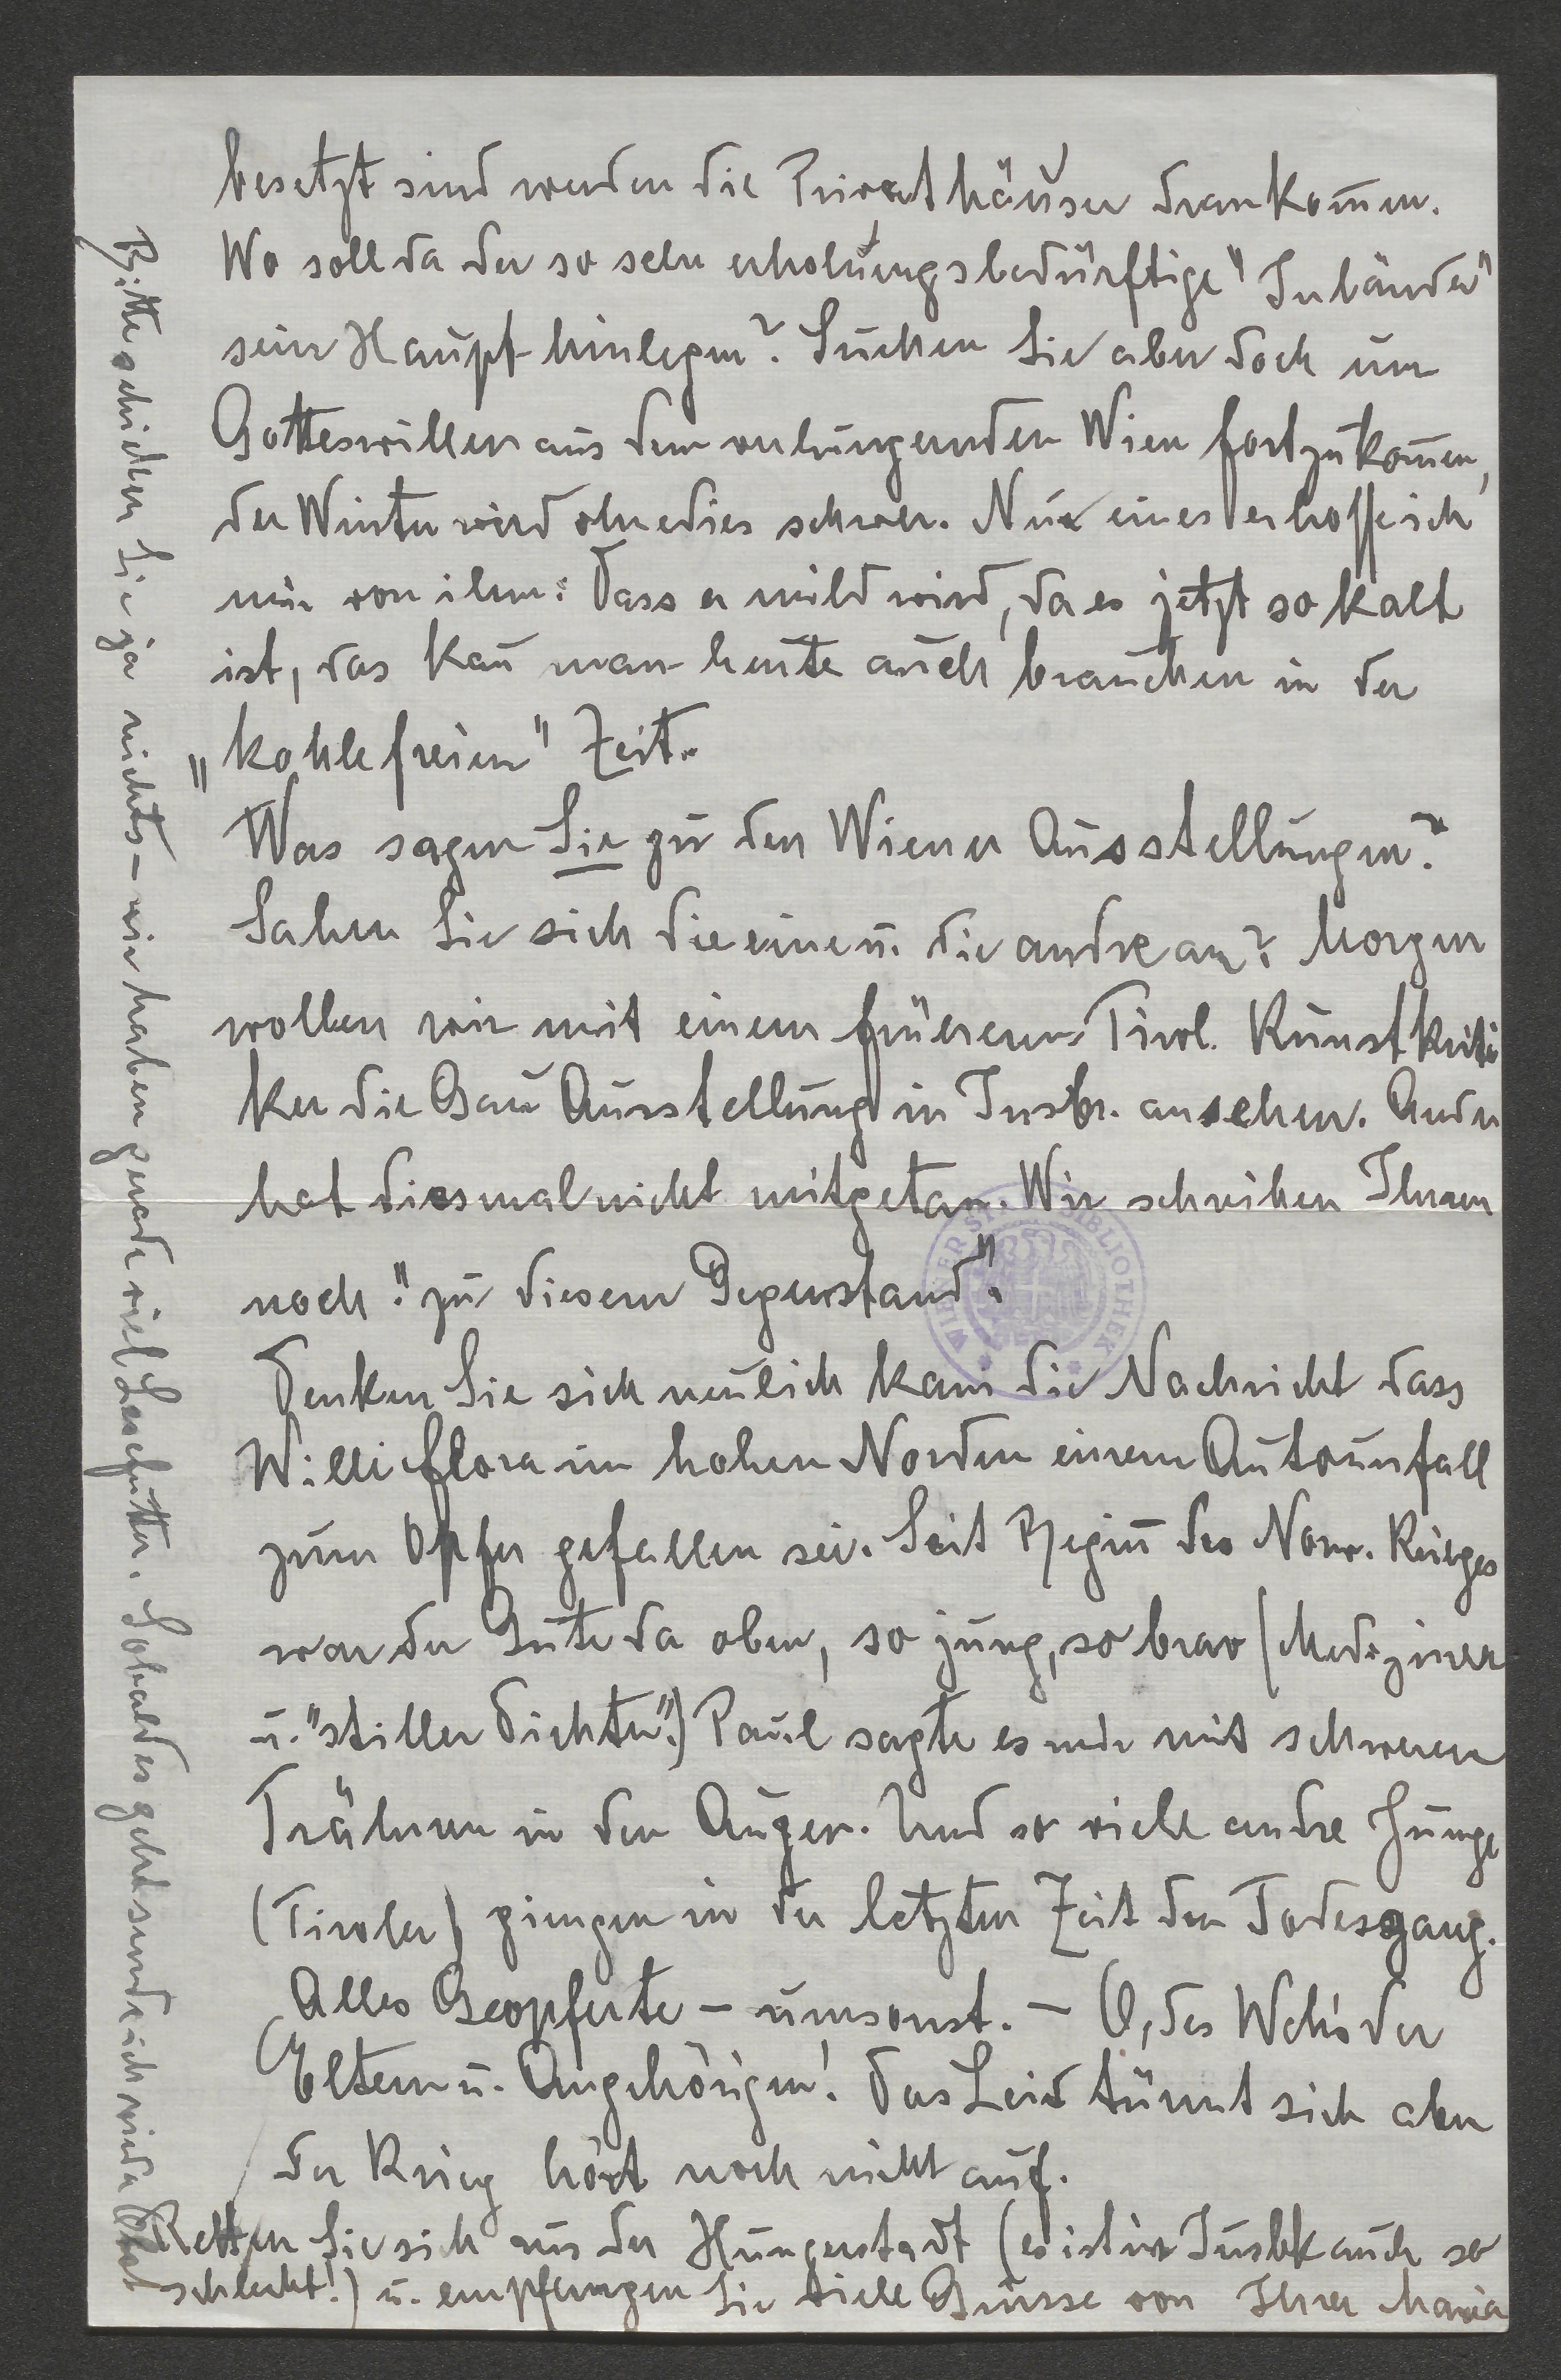 besetzt sind werden die Privathäuser drankom̄en.
Wo soll da der so sehr erholungsbedürftige "Inländer"
sein Haupt hinlegen? Suchen Sie aber doch um
Gotteswillen aus dem verhungernden Wien fortzukom̄en,
der Winter wird ohnedies schwer. Nur eines erhoffe ich
mir von ihm: dass er mild wird, da es jetzt so kalt
ist, das kan̄ man heute auch brauchen in der
„kohlefreien" Zeit.
Was sagen Sie zu den Wiener Ausstellungen?
Sahen Sie sich die eine u. die andre an? Morgen
wollen wir mit einem früheren Tirol. Kunstkriti
ker die Gau Ausstellung in Insbr. ansehen. Andr
hat diesmal nicht mitgetan. Wir schreiben Ihnen
noch "zu diesem Gegenstand".
Denken Sie sich neulich kam die Nachricht dass
Willi Flora im hohen Norden einem Autounfall
zum Opfer gefallen sei. Seit Begin̄ des Norw. Krieges
war der Gute da oben, so jung, so brav (Mediziner
u. "stiller Dichter".) Paul sagte es mir mit schweren
Trähnen in den Augen. Und so viele andre Junge
(Tiroler) giengen in der letzten Zeit den Todesgang.
Alles Geopferte – umsonst. – O, des Weh's der
Eltern u. Angehörigen! Das Leid türmt sich aber
der Krieg hört noch nicht auf.
Retten Sie sich aus der Hungerstadt (es ist in Insbk auch so
schlecht!) u. empfangen Sie viele Grüsse von Ihrer Maria
Bitte schicken Sie ja nichts – wir haben gerade viel Lesefutter. Sobald es geht sende ich wieder Obst
WIENER STADTBIBLIOTHEK